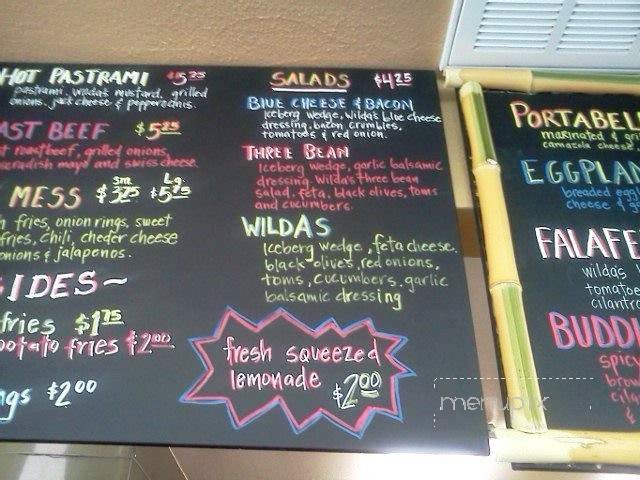 HOT PASTRAMI $5.25
pastrami, wilda's mustard, grilled
onions, jack cheese & pepperoncinis.
AST BEEF $5.25
roast beef, grilled onions,
mayo and swiss cheese
MESS sm $3.25 Lg $5.75
fries, onion rings, sweet
fries, chili, cheder cheese
onions & jalapenos.
SIDES~
fries $1.75
potato fries $2.00
ngs $2.00
SALADS $4.25
BLUE CHEESE & BACON
Iceberg wedge, wilda's blue cheese
dressing, bacon crumbles,
tomatoes & red onion.
THREE BEAN
Iceberg wedge, garlic balsamic
dressing, wilda's three bean
salad, feta, black olives, toms
and cucumbers.
WILDAS
Iceberg wedge, feta cheese,
black olives, red onions,
toms, cucumbers, garlic
balsamic dressing
fresh squeezed
lemonade $2.00
PORTABEL
marinated & gr
cheese
EGGPLAN
breaded egg
cheese &
FALAFE
wilda's
tomatoe
cilantro
BUDD
spicy
brow
menupix